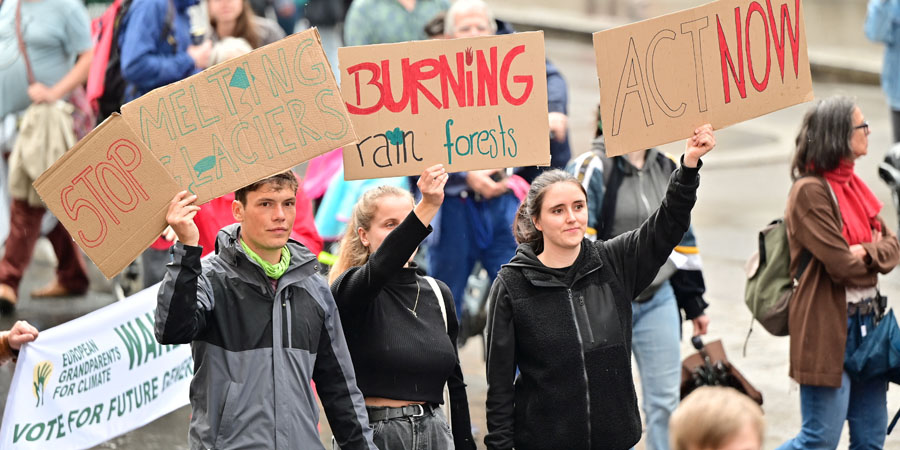 STOP
MELTING
GLACIERS
BURNING
rain forests
ACT NOW
EUROPEAN
GRANDPARENTS
FOR CLIMATE
VOTE FOR FUTURE